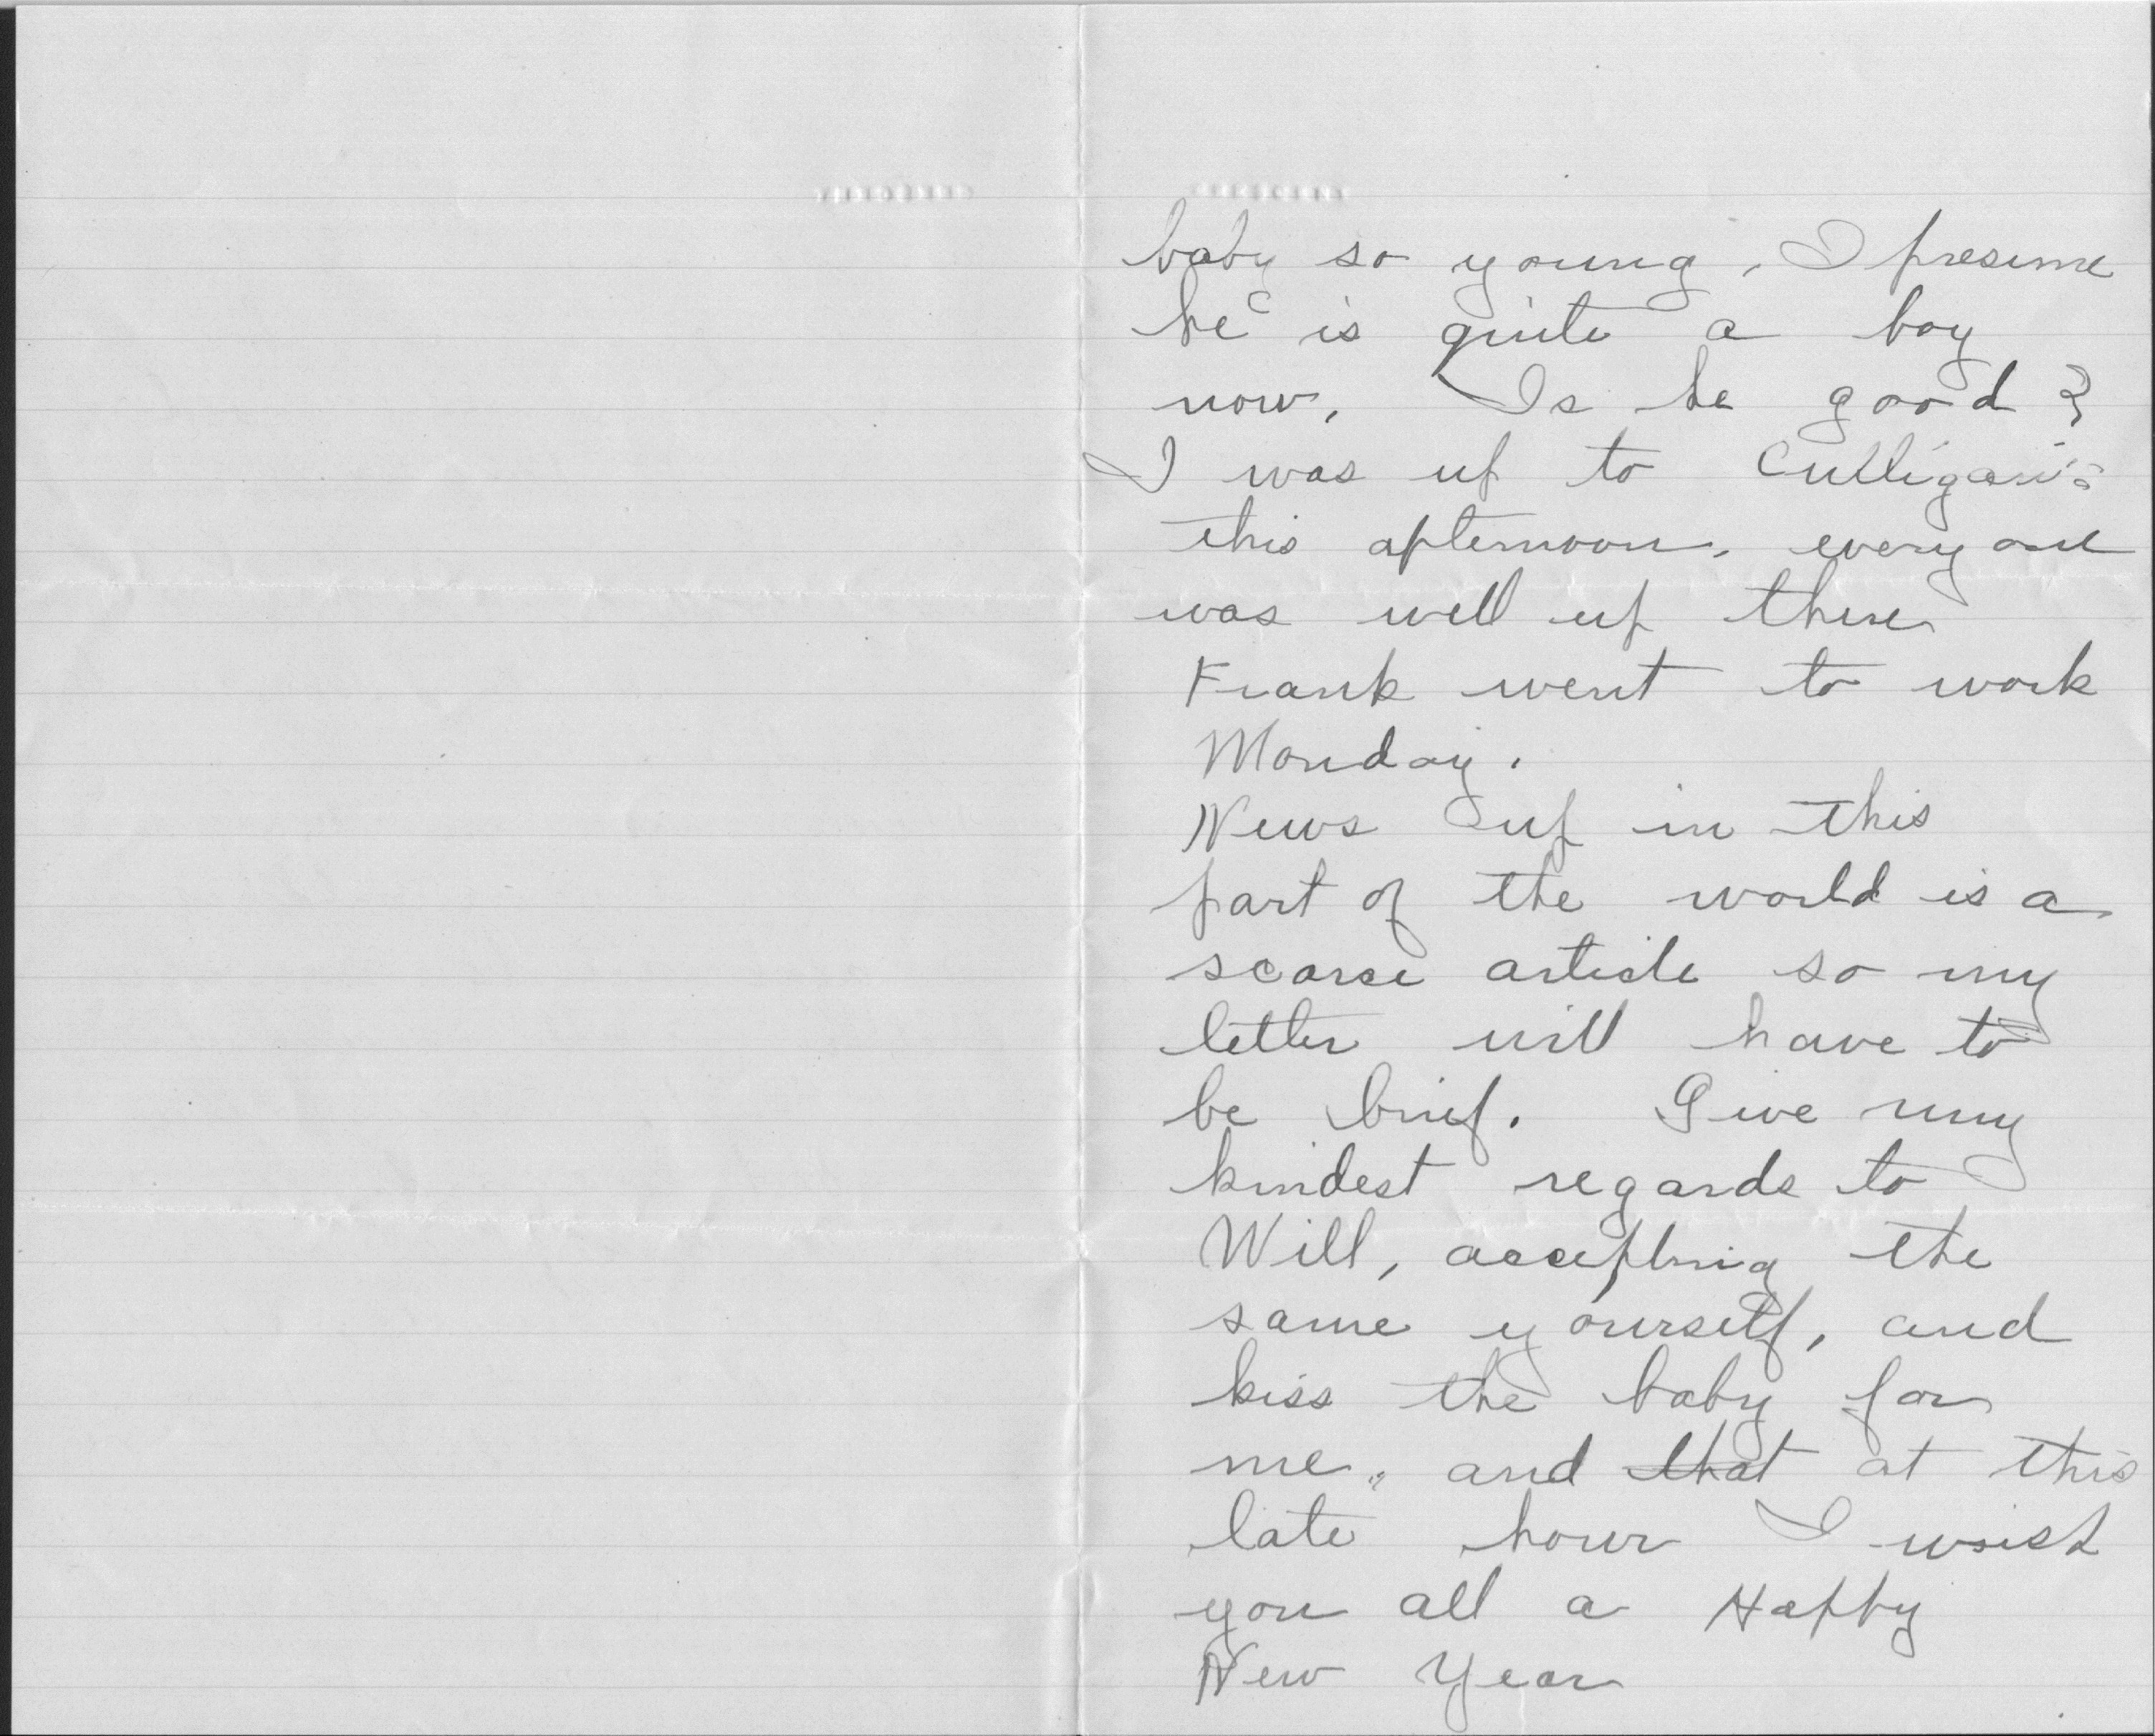 baby so young, I presume
he is quite a boy
now. Is he good?
I was up to Culligan's
this afternoon, every one
was well up there
Frank went to work
Monday.
News up in this
part of the world is a
scarce article so my
letter will have to
be brief. Give my
kindest regards to
Will, accepting the
same yourself, and
kiss the baby for
me, and that at this
late hour I wish
you all a Happy
New Year